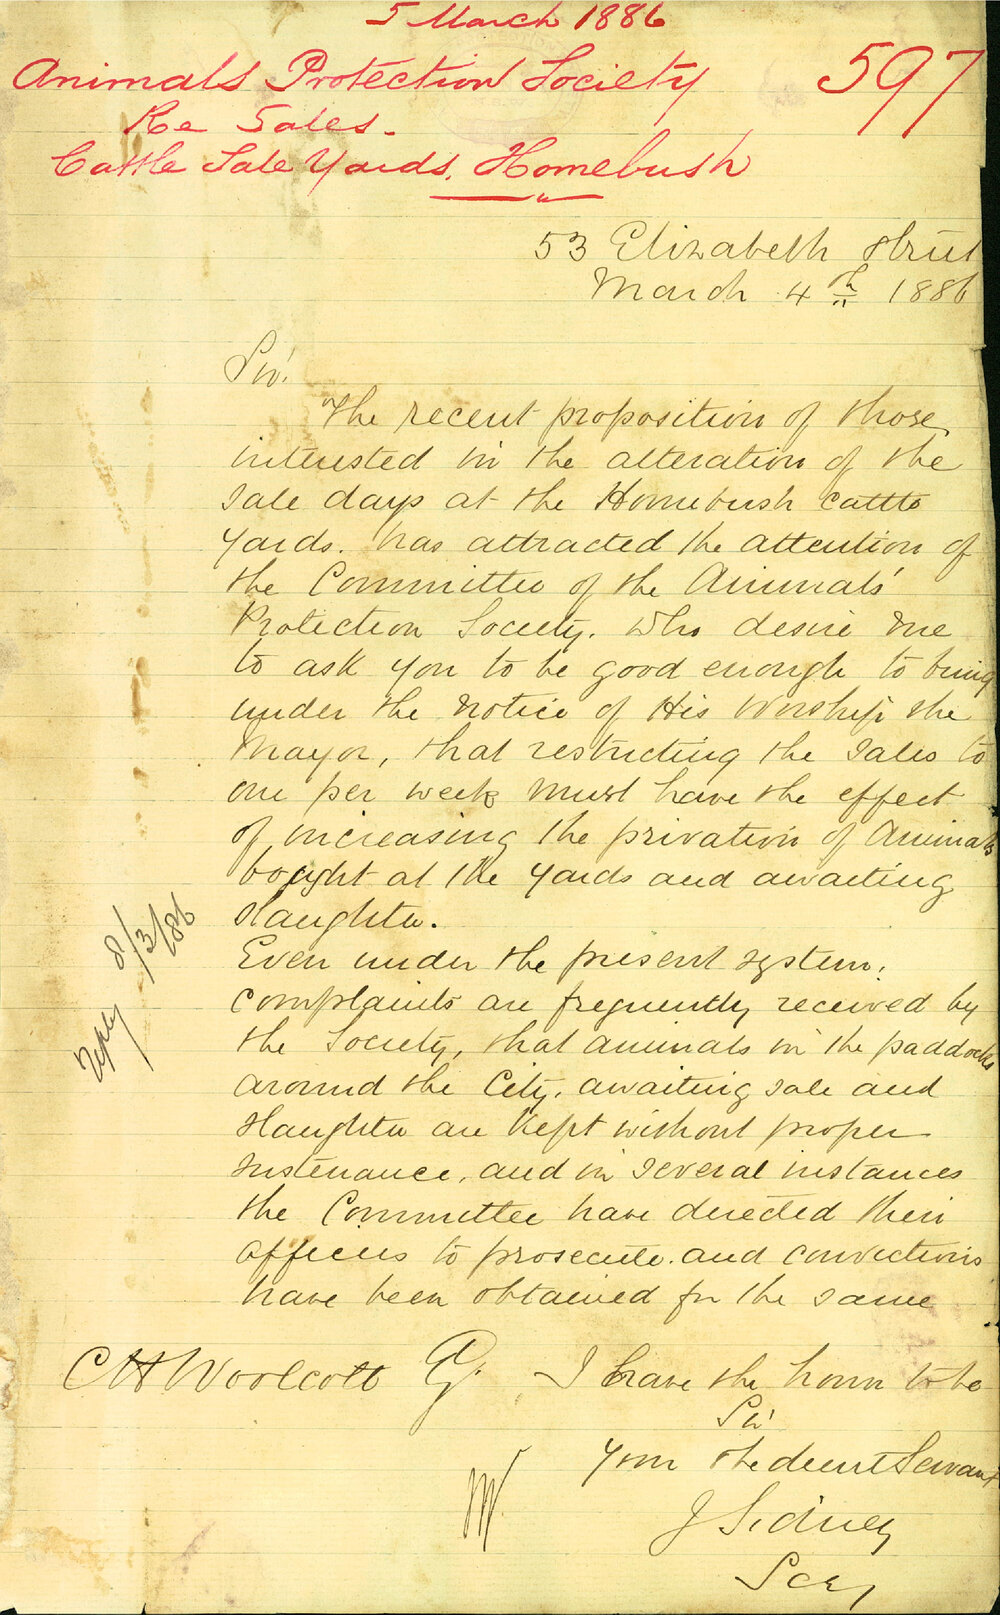 5 March 1886
Animals Protection Society
597
Re Sales.
Cattle Sale Yards, Homebush
53 Elizabeth Street
March 4th 1886
Sir,
The recent proposition of those
interested in the alteration of the
sale days at the Homebush cattle
yards. has attracted the attention of
the Committee of the Animals'
Protection Society. who desire me
to ask you to be good enough to bring
under the notice of His Worship the
Mayor, that restricting the sales to
one per week must have the effect
of increasing the privation of Animals
bought at the yards and awaiting
slaughter.
Even under the present system,
complaints are frequently received by
the Society, that animals in the paddocks
around the City, awaiting sale and
slaughter are kept without proper
sustenance, and in several instances
the Committee have directed their
officers to prosecute. and convictions
have been obtained for the same
Reply 8/3/86
C H Woolcott
I have the honor to be
Sir
Your obedient Servant
J Sidney
Secy